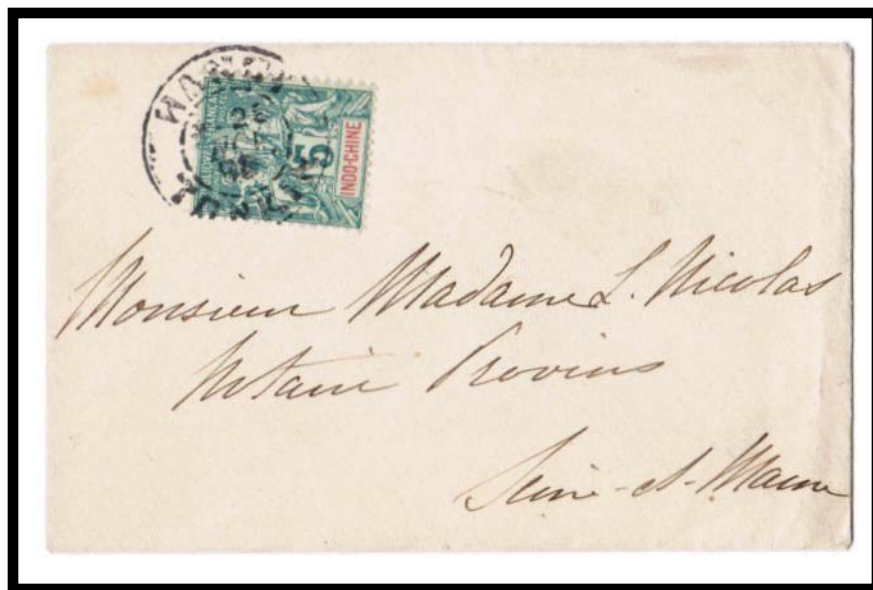 5
INDO-CHINE
Monsieur Madame L. Nicolas
Notaire Provins
Seine-et-Marne